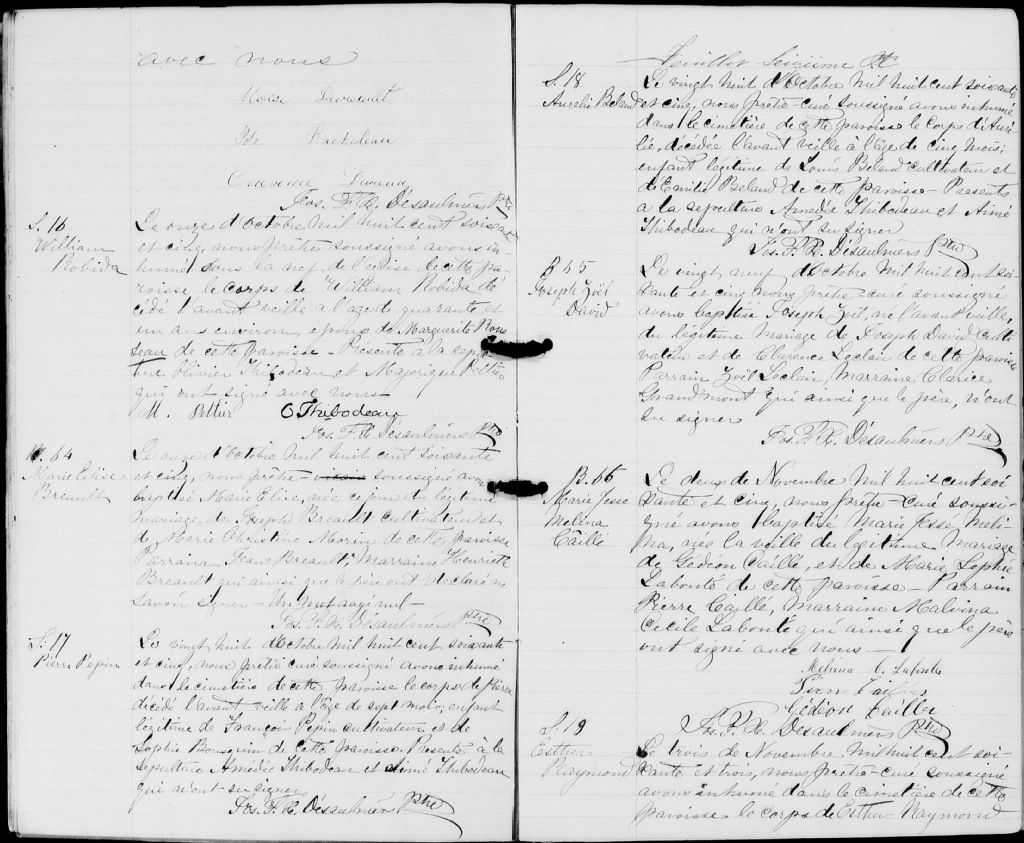 avec nous
Moïse
Ide
Jos. F. X. Désaulniers Ptre
S. 16
William
Robida
Le onze d'Octobre mil huit cent soixante
et cinq, nous prêtre soussigné avons in-
humé sous la nef de l'église de cette pa-
roisse le corps de William Robida dé-
cédé l'avant veille a l'age de quarante et
un ans environ, époux de Marguerite Rous
seau de cette paroisse - Présents à la sépul
ture Olivier Thibodeau et Majorique Peltier
qui ont signé avec nous
M. Peltier O Thibodeau
Jos. F. X. Désaulniers Ptre
B. 64
Marie Elise
Breault
Le onze d'Octobre mil huit cent soixante
et cinq, nous prêtre- soussigné avons
baptisé Marie Elise, née ce jour du légitime
mariage de Joseph Breault cultivateur et
de Marie Christine Morin de cette paroisse
Parrain Jean Breault, Marraine Henriette
Breault qui ainsi que le père ont déclaré ne
savoir signer - Un mot rayé nul -
Jos. F. X. Désaulniers Ptre
S. 17
Pierre Pepin
Le vingt huit d'Octobre mil huit cent soixante
et cinq, nous prêtre curé soussigné avons inhumé
dans le cimetière de cette paroisse le corps de Pierre
décédé l'avant veille a l'age de sept mois, enfant
légitime de François Pepin cultivateur et de
Sophie Bousquin de cette paroisse. Présents à la
sépulture Amédée Thibodeau et Aimé Thibodeau
qui n'ont su signer
Jos. F. X. Désaulniers Ptre
Feuillet Seizième
S. 18
Aurelie Beland
Le vingt huit d'Octobre mil huit cent soixante
et cinq, nous prêtre-curé soussigné avons inhumé
dans le cimetière de cette paroisse le corps d'Auré
lie, décédée l'avant veille à l'age de cinq mois,
enfant légitime de Louis Beland cultivateur et
d'Emilie Beland de cette paroisse - Presents
a la sepulture Amedée Thibodeau et Aimé
Thibodeau qui n'ont su signer
Jos. F. X. Désaulniers Ptre
B 65
Joseph Zoël
David
Le vingt neuf d'Octobre mil huit cent soi
xante et cinq nous prêtre-curé soussigné
avons baptisé Joseph Zoël, né l'avant veille,
du légitime mariage de Joseph David culti
vateur et de Clarence Leclair de cette paroisse
Parrain Zoël Leclair, Marraine Clarice
Grandmont qui ainsi que le père, n'ont
su signer
Jos. F. X. Désaulniers Ptre
B. 66
Marie Jessé
Melina
Caillé
Le deux de Novembre mil huit cent soi
xante et cinq, nous prêtre-curé soussi-
gné avons baptisé Marie Jessé Meli-
na, née la veille du légitime mariage
de Gedeon Caillé, et de Marie Sophie
Labonté de cette paroisse - Parrain
Pierre Caillé, Marraine Malvina
Cecile Labonté qui ainsi que le père
ont signé avec nous -
Gédéon Cailler
Jos. F. X. Desaulniers Ptre
S. 19
Esther
Raymond
Le trois de Novembre mil huit cent soi-
xante et trois, nous prêtre-curé soussigné
avons inhumé dans le cimetière de cette
paroisse le corps de Esther Raymond